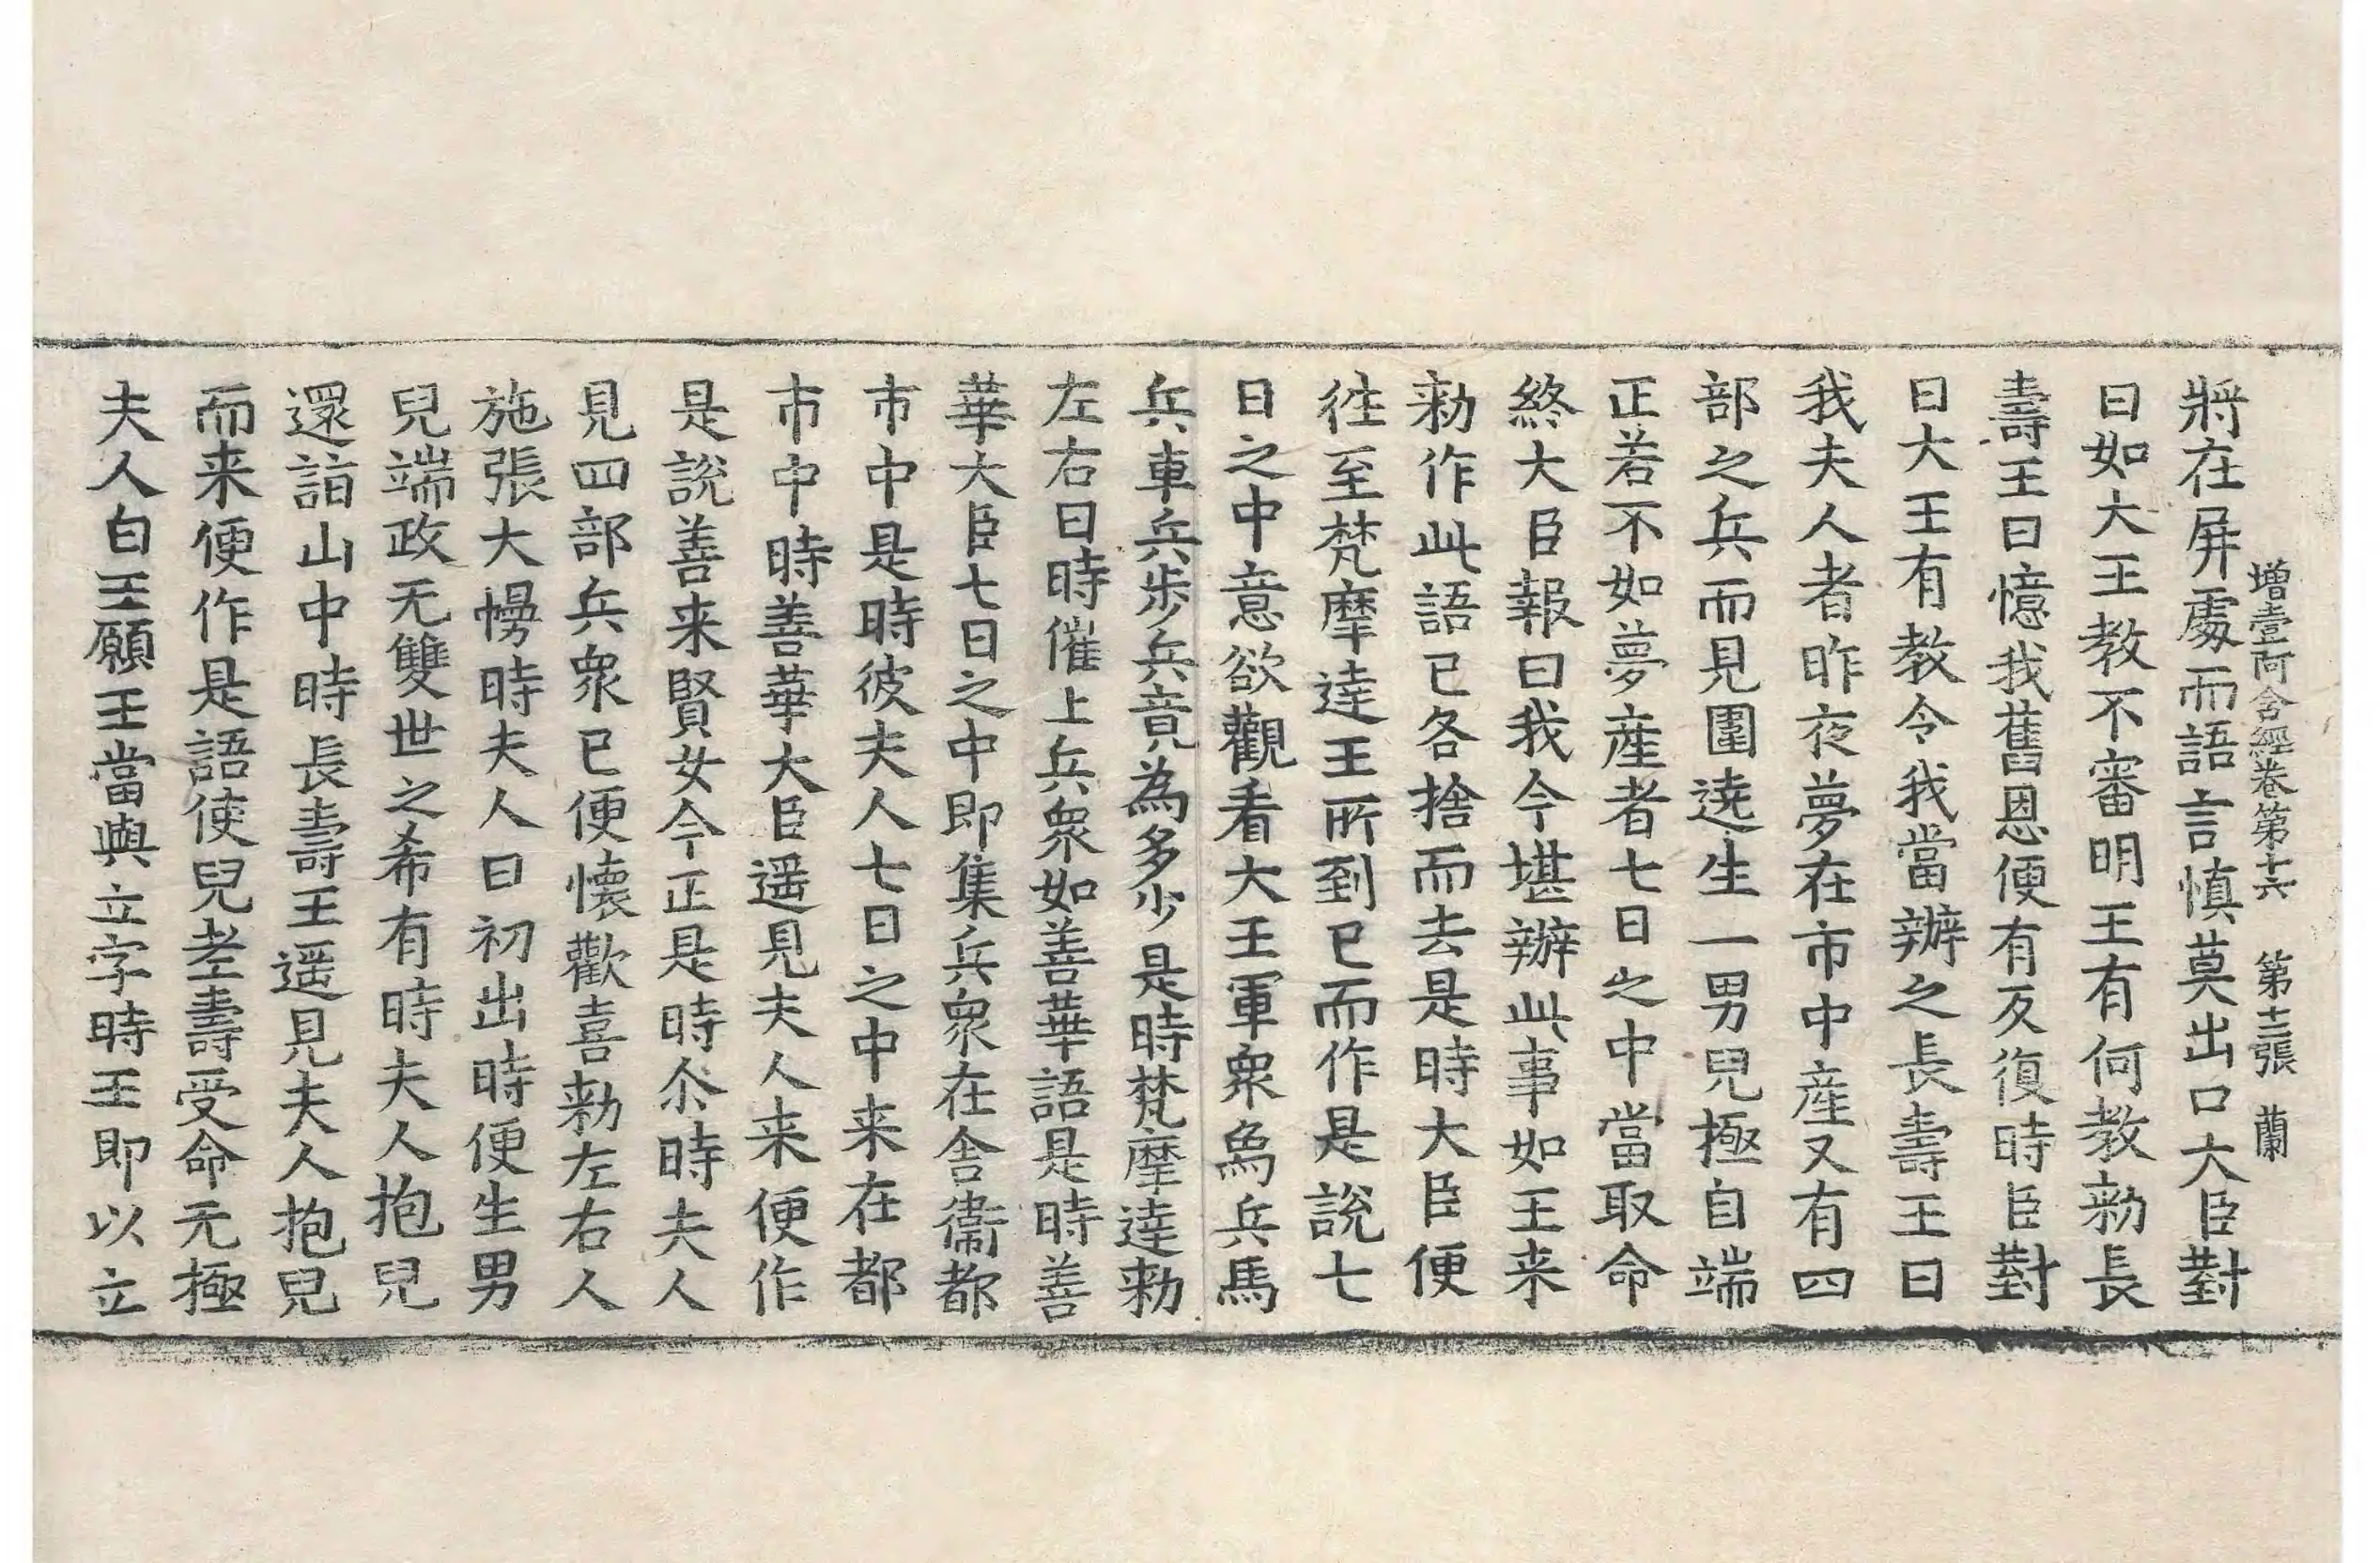 增壹阿含經卷第十六 第十三張 蘭
將在屏處而語言慎莫出口大臣對
曰如大王教不審明王有何教勑長
壽王曰憶我舊恩便有反復時臣對
曰大王有教令我當辦之長壽王曰
我夫人者昨夜夢在市中產又有四
部之兵而見圍遶生一男兒極自端
正若不如夢産者七日之中當取命
終大臣報曰我今堪辦此事如王来
勑作此語已各捨而去是時大臣便
往至梵摩達王所到已而作是說七
日之中意欲觀看大王軍衆烏兵馬
兵車兵步兵竟為多少是時梵摩達勑
左右曰時催上兵衆如善華語是時善
華大臣七日之中即集兵衆在舍衞都
市中是時彼夫人七日之中来在都
市中時善華大臣遥見夫人来便作
是說善来賢女今正是時尒時夫人
見四部兵衆已便懷歡喜勑左右人
施張大幔時夫人日初出時便生男
兒端政无雙世之希有時夫人抱兒
還詣山中時長壽王遥見夫人抱兒
而来便作是語使兒老壽受命无極
夫人白王願王當與立字時王即以立